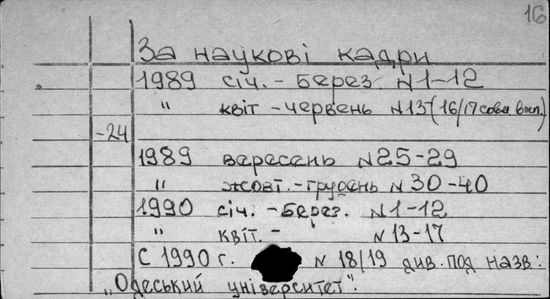 16
За наукові кадри
1989 січ. - Берез. N 1-12
" квіт - червень N 13 (16/17
-24
1989 вересень N 25-29
" жовт. - грудень N 30-40
1990 січ. - Берез. N 1-12
" квіт. - N 13-17
С 1990 г. N 18/19 див. под назв.:
„Одеський університет".